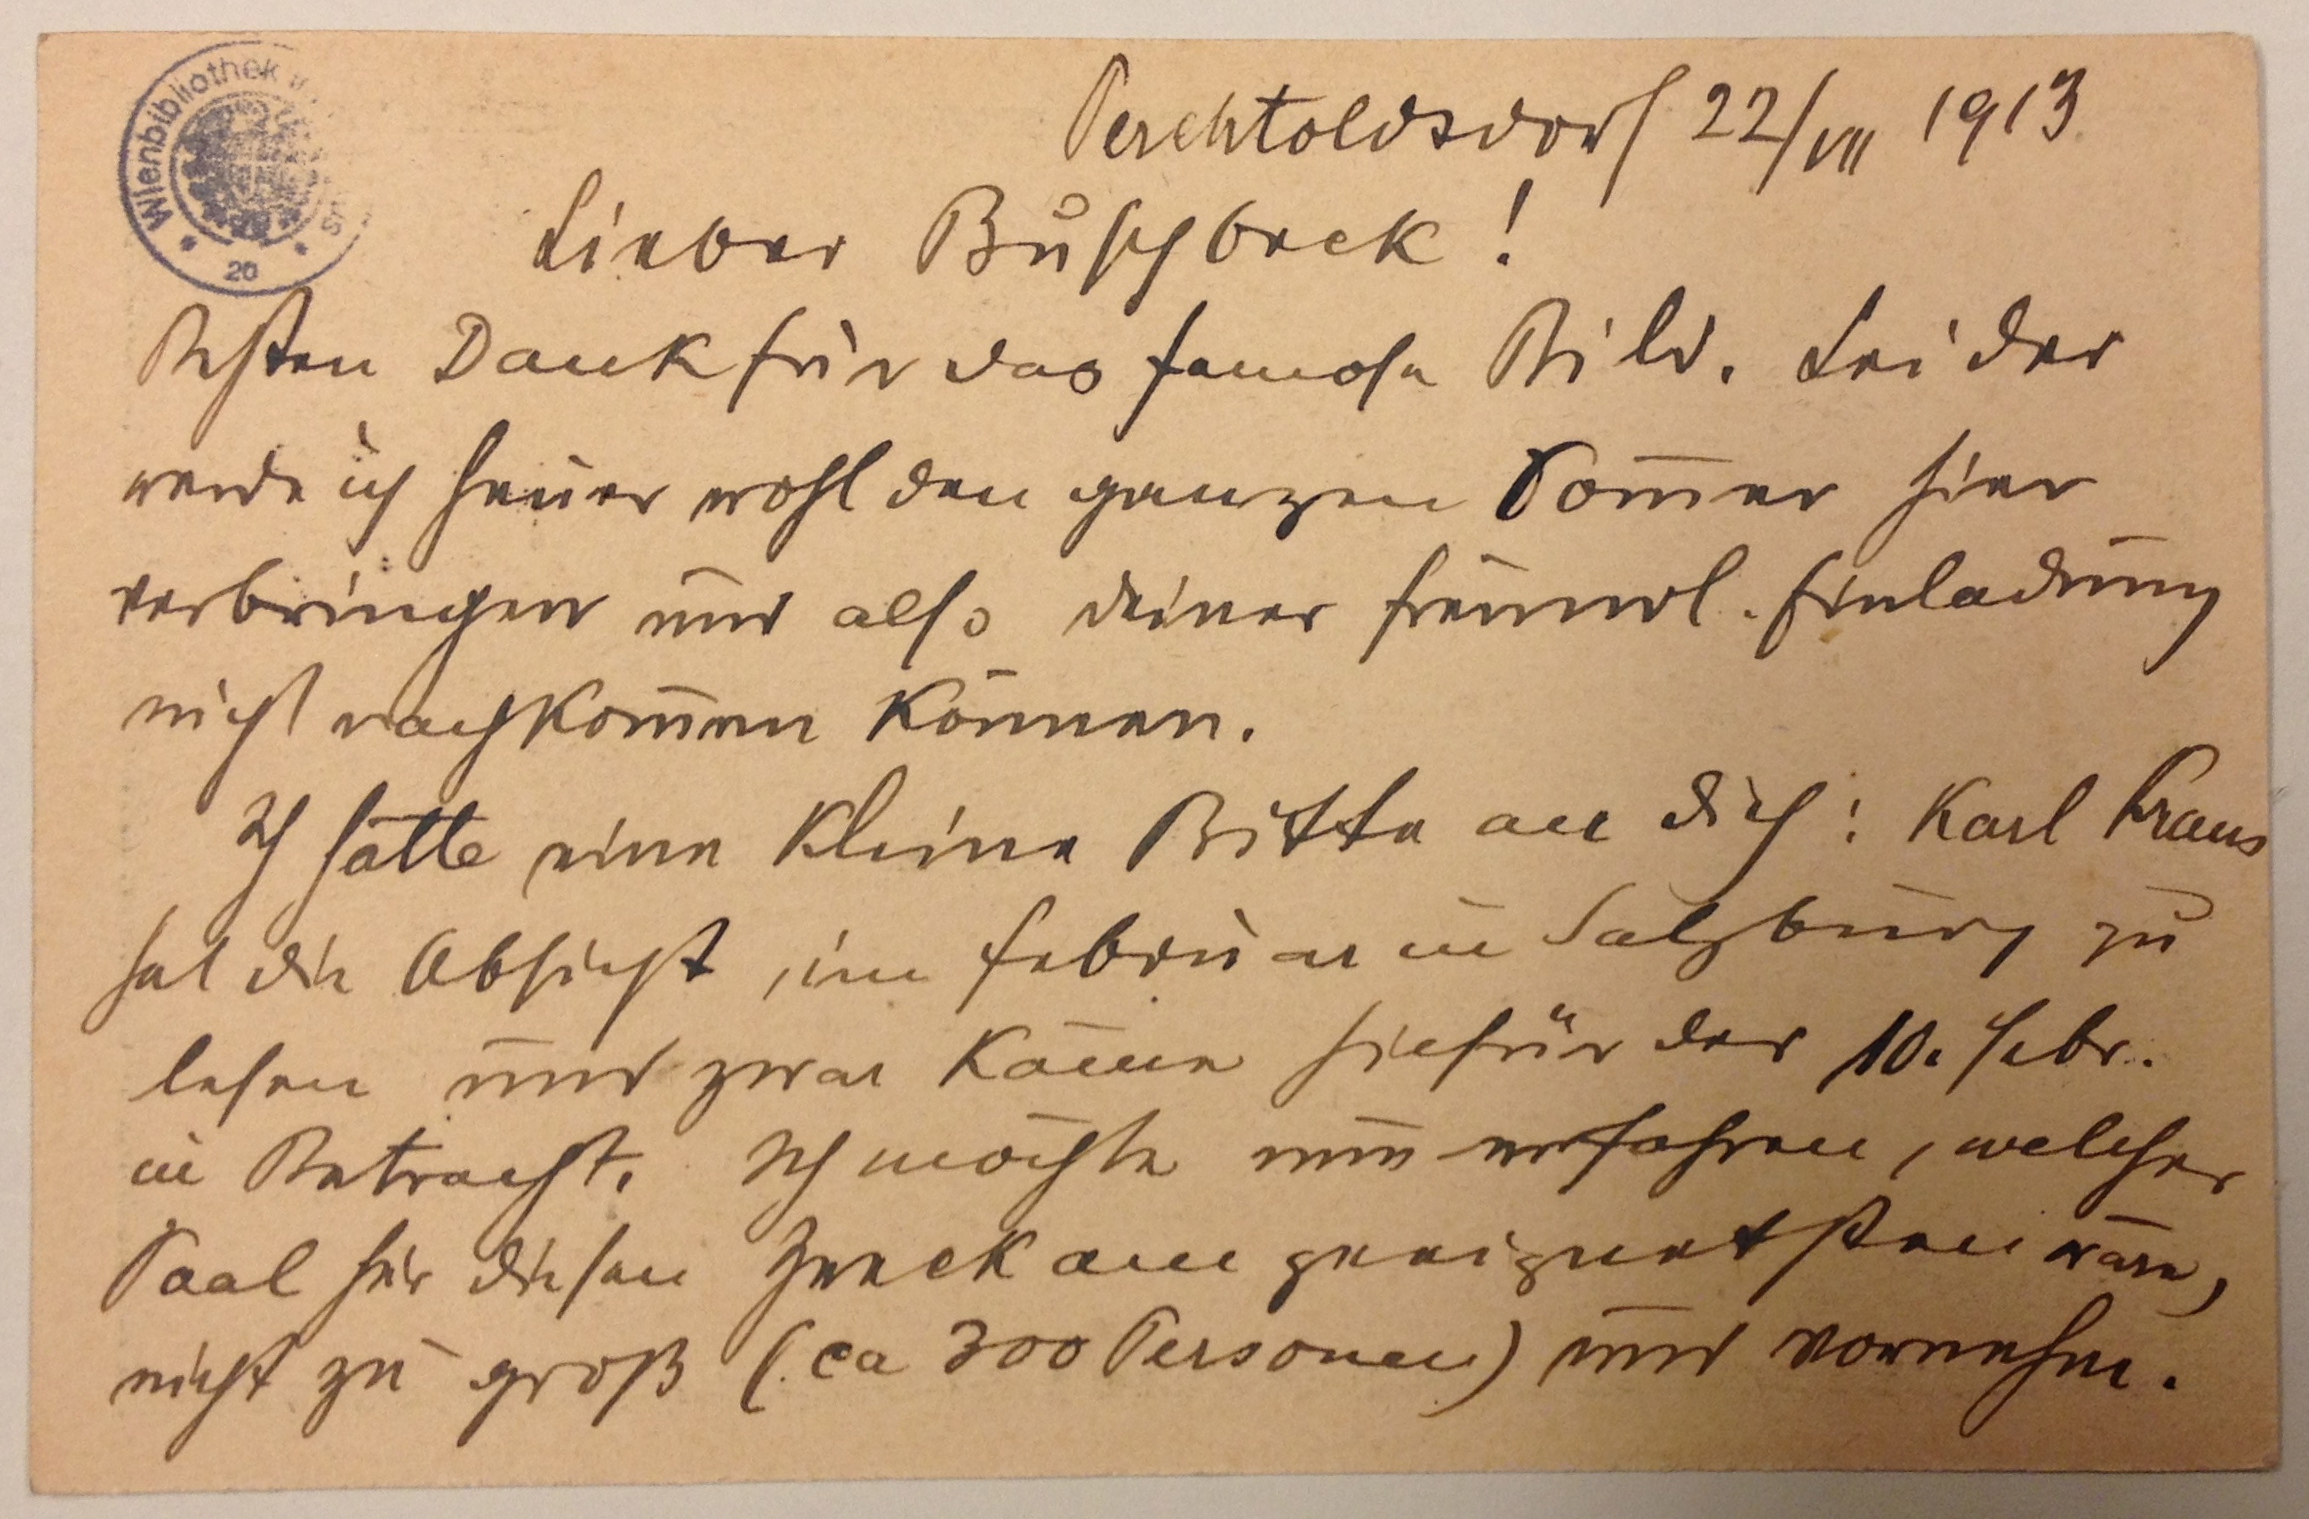 Wienbibliothek i
20
Perchtoldsdorf 22/VII 1913
Lieber Buschbeck!
Besten Dank für das famose Bild. Leider
werde ich heuer wohl den ganzen Som̅er hier
verbringen und also deiner freundl. Einladung
nicht nachkom̅en können.
Ich hätte eine kleine Bitte an dich: Karl Kraus
hat die Absicht, im Februar in Salzburg zu
lesen und zwar käme hiefür der 10. Febr.
in Betracht. Ich möchte nun erfahren, welcher
Saal für diesen Zweck am geeignetsten wäre,
nicht zu groß (ca 300 Personen) und vornehm.